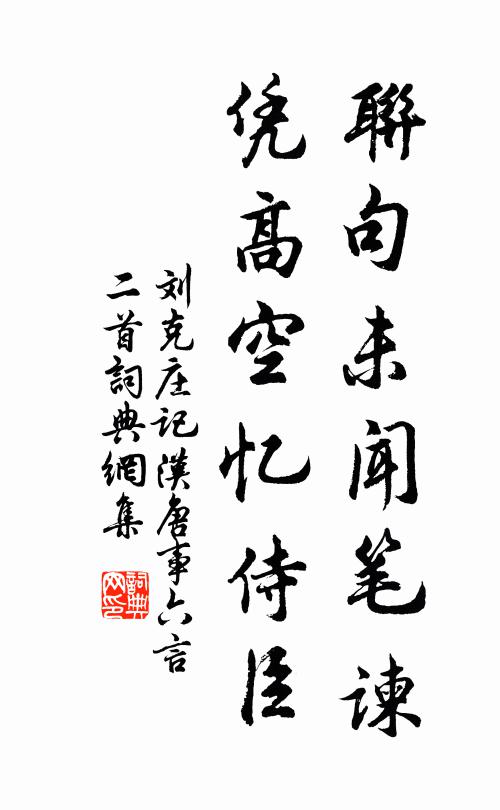 聯句未闻笔諫
凭高空忆侍臣
刘克庄记漢唐事六言
二首詞典網集
詞典网印